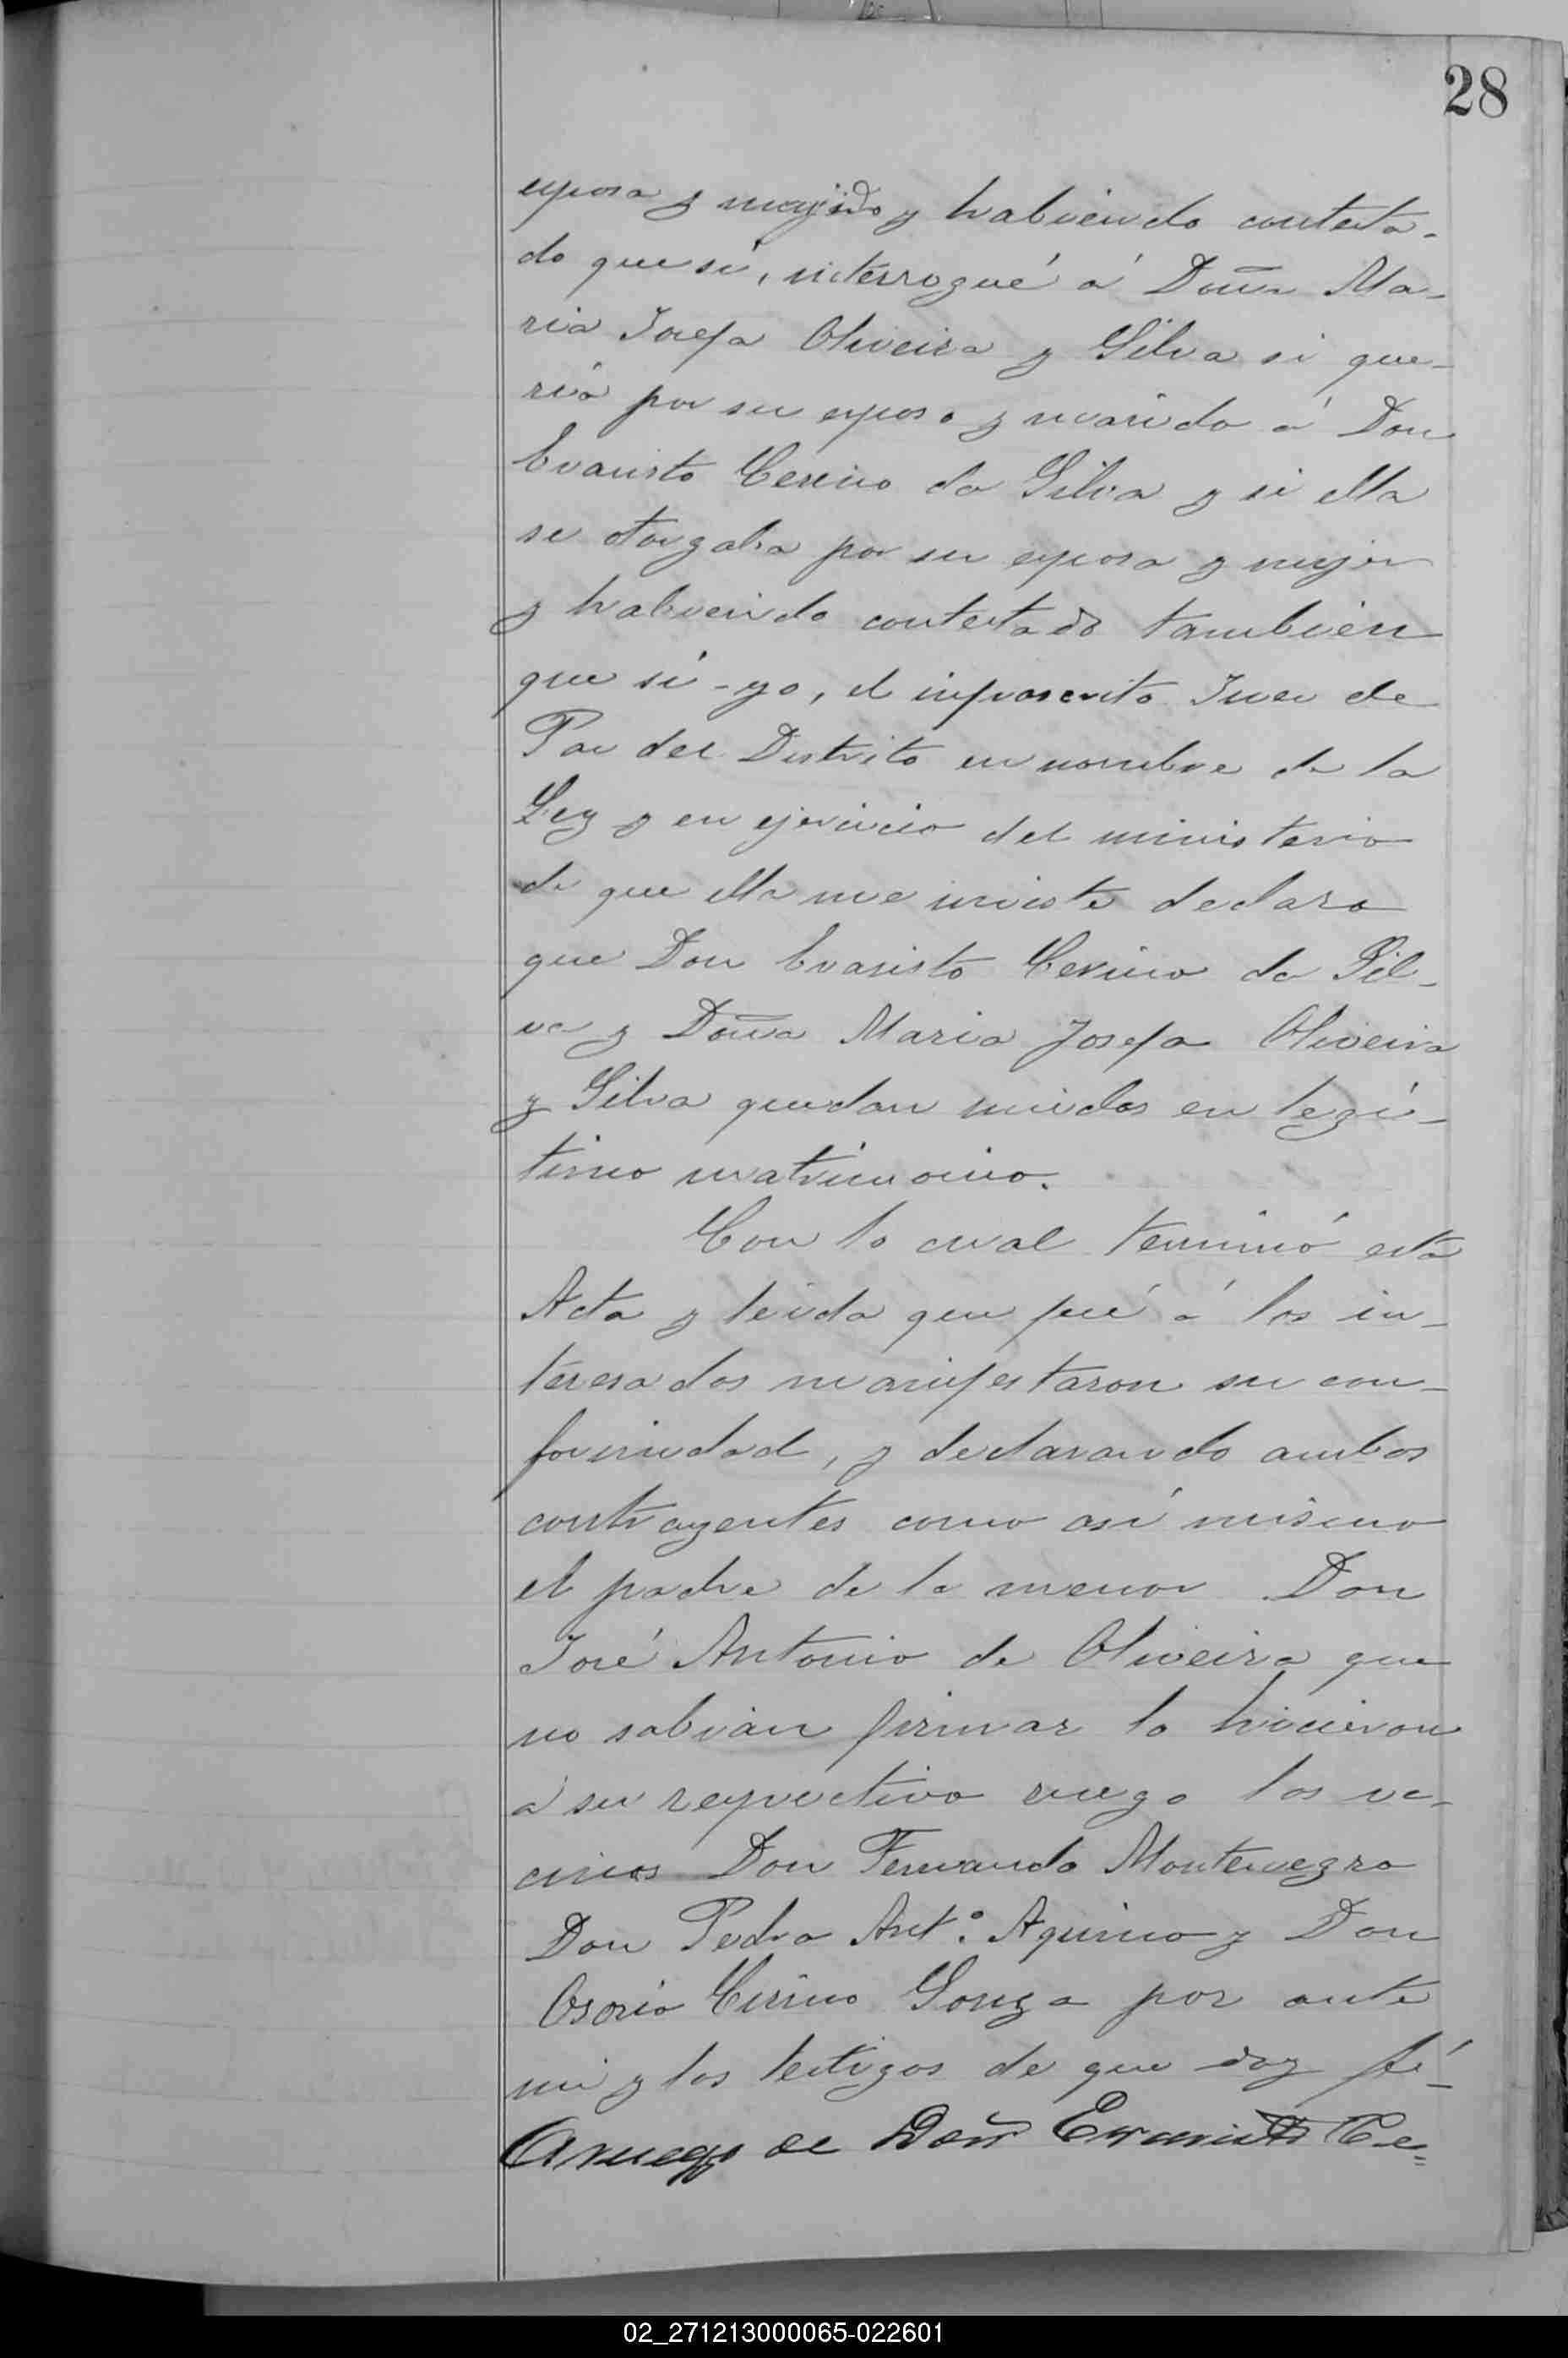 28
esposa y marido y habiendo contesta-
do que sí, interrogué á Doña Ma-
ria Josefa Oliveira y Silva si que-
ría por su esposo y marido á Don
Evaristo Cerino da Silva y si ella
se otorgaba por su esposa y mujer
y habiendo contestado también
que sí - yo, el infrascrito Juez de
Paz del Distrito en nombre de la
Ley y en ejercicio del ministerio
de que ella me inviste declaro
que Don Evaristo Cerino da Sil-
va y Doña Maria Josefa Oliveira
y Silva quedan unidos en legí-
timo matrimonio.
Con lo cual terminó esta
Acta y leida que fué á los in-
teresados manifestaron su con-
formidad, y declarando ambos
contrayentes como así mismo
el padre de la menor Don
José Antonio de Oliveira que
no sabian firmar lo hicieron
á su respectivo ruego los ve-
cinos Don Fernando Montenegro
Don Pedro Antº. Aquino y Don
Osorio Cirino Gonza por ante
mi y los testigos de que doy fé_
A ruego de Don Evaristo Ce=
02_271213000065-022601